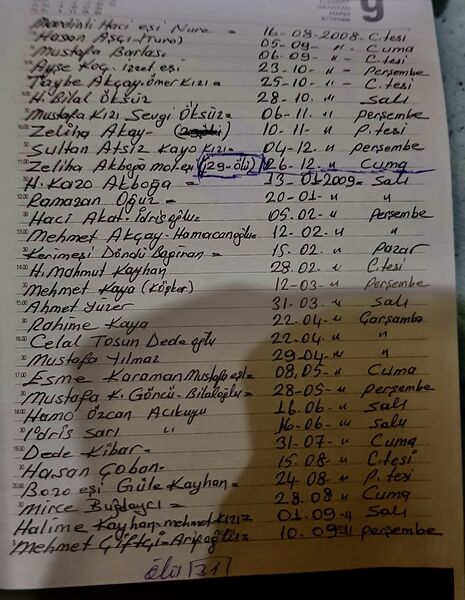 9
Mardinli Haci eşi Nure = 16-08-2008 C.tesi
Hasan Aşçı-(Tuna) 05-09- " Cuma
Mustafa Barlas: 06-09- " C.tesi
Ayşe Koç. izzet eşi 23-10- " - Perşembe
Taybe Akçay. Ömer Kızı = 25-10- " - C.tesi
H. Bilal Öksüz 28-10- " Salı
Mustafa Kızı Sevgi Öksüz = 06-11- " perşembe
Zeliha Akay- 10-11- " P.tesi
Sultan Atsız Kayo Kızı = 04-12- " perşembe
Zeliha Akboğa (29-Ölü) 26-12- " Cuma
H. Kazo Akboğa = 13-01-2009 = Salı
Ramazan Oğuz = 20-01- " "
Haci Akat-İdrisoğlu 05.02- " Perşembe
Mehmet Akçay-Hamacanoğlu = 12-02- " "
Kerimeşi Döndü = 15.02- " Pazar
H. Mahmut Kayhan 28.02- " C.tesi
Mehmet Kaya (Köşker) 12-03- " Perşembe
Ahmet Yüzer 31-03- " Salı
Rahime Kaya 22.04- " Çarşamba
Celal Tosun Dede oğlu 22.04- " "
Mustafa Yılmaz 29.04- " "
Esme Karaman Mustafa eşi = 08.05- " Cuma
Mustafa K. Göncü-Bilaloğlu = 28-05- " perşembe
Hamo Özcan Acıkuyu 16-06- " Salı
İdris Sarı " 16-06- " salı
Dede Kibar = 31-07- " Cuma
Hasan Çoban = 15.08- " C.tesi
Bozo eşi Güle Kayhan = 24 08- " P.tesi
Mirce Buğdaycı = 28.08 " Cuma
Halime Kayhan-mehmet Kızı = 01.09- " Salı
Mehmet Çiftçi-Arifoğlu = 10.09- " perşembe
ölü (31)